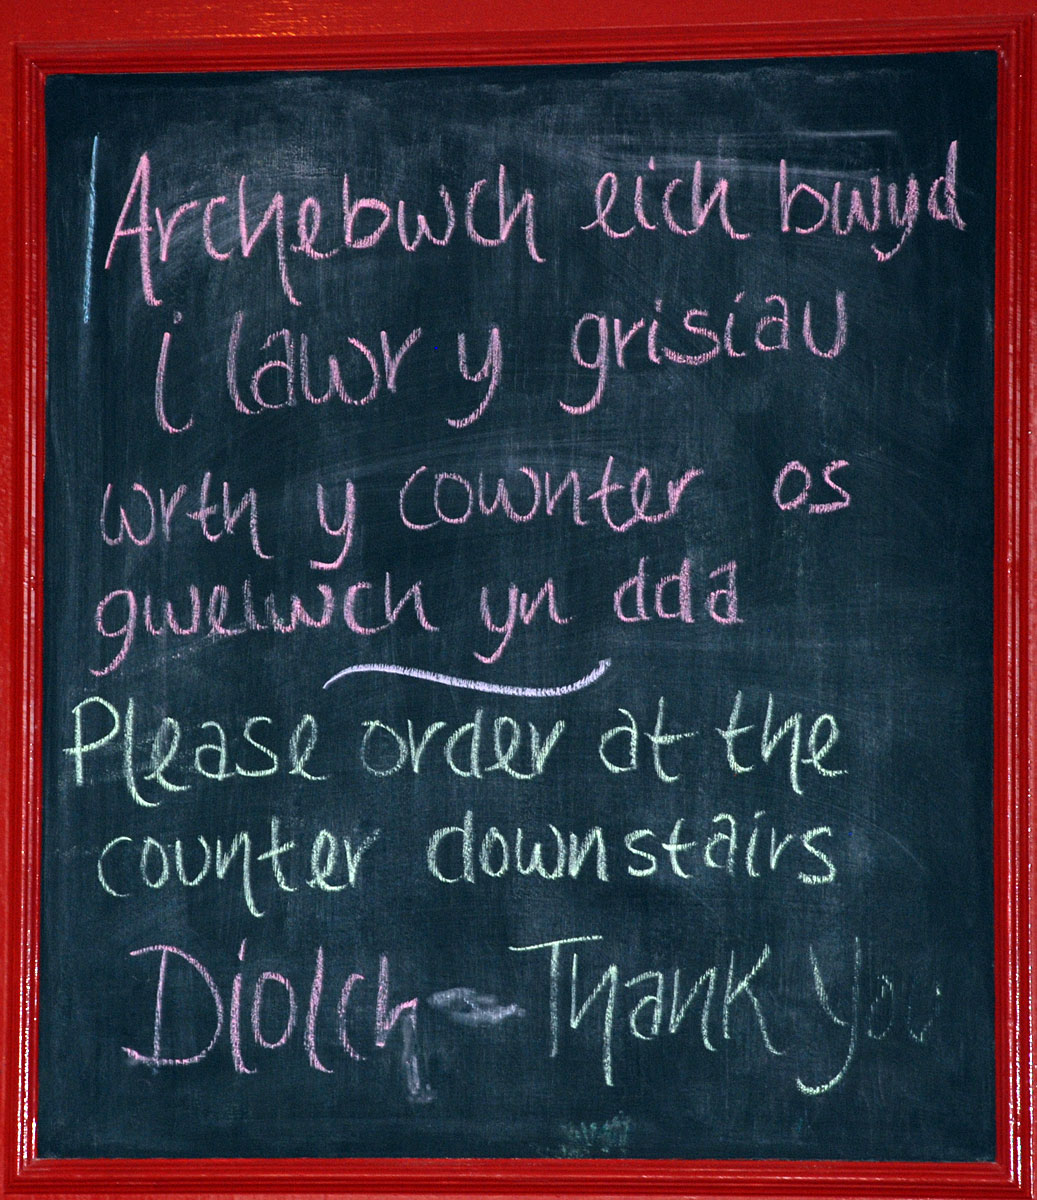 Archebwch eich bwyd
i lawr y grisiau
wrth y cownter os
gwelwch yn dda
Please order at the
counter downstairs
Diolch - Thank You